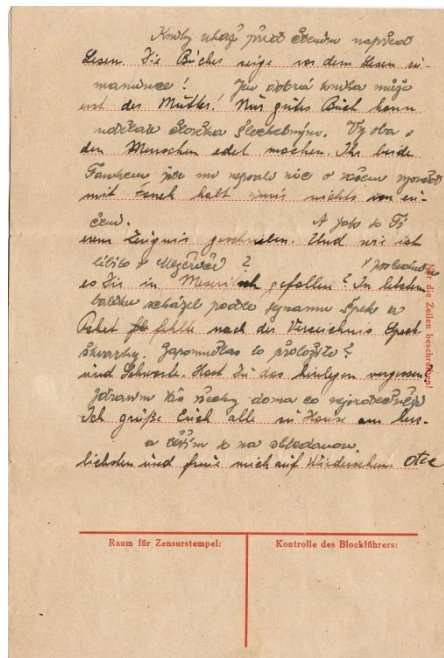 Knihy ukaž před čtením napřed
Lesen. Die Bücher zeige vor dem Lesen
maminee! Jen dobrá kniha může
erst der Mutter! Nur gutes Buch kann
udělati člověka šlechetným. Vy oba
den Menschen edel machen. Ihr beide
Fankem jste mi nepsali nic o vašem
mit Fanek habt mir nichts von eu-
čení. A jak se Ti
erem Zeignis geschrieben. Und wie ist
líbilo v Meziříčí? V posledním
es Dir in Meseritsch gefallen? In letzten
balíku scházel podle seznamu špek a
Paket fehlte nach der Verzeichnis Speck
škvarky. Zapomnělas to přiložit?
und Schwarte. Hast Du das hinlegen vergessen
Zdravím Vás všechny doma co nejsrdečněji
Ich grüße Euch alle zu Hause am herz-
a těším se na shledanou.
lichsten und freue mich auf Wiedersehen. Otec
Auf die Zeilen beschreiben!
Raum für Zensurstempel:
Kontrolle des Blockführers: